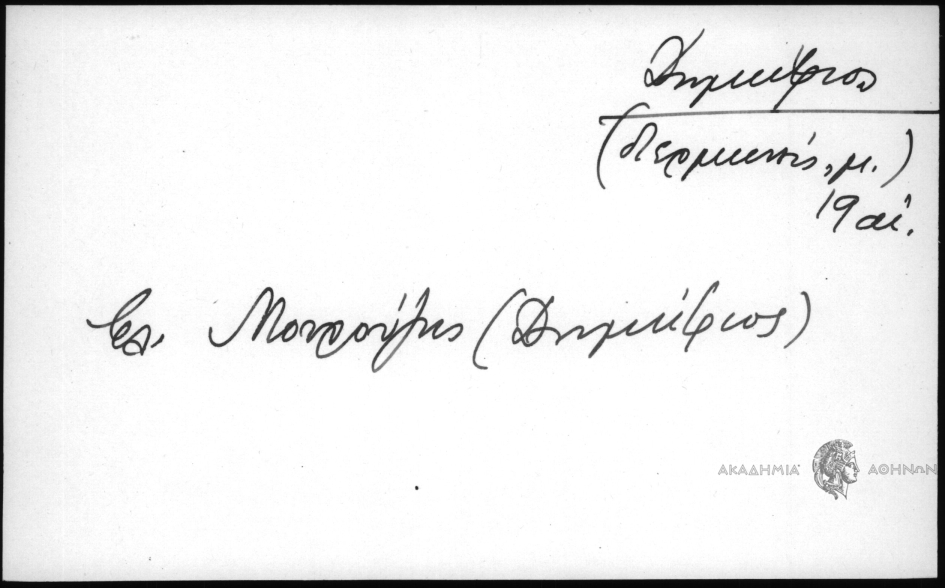 Δημήτριος
(δερμιτσής, μ.)
19 αἰ.
Βλ. Μουρούζης (Δημήτριος)
ΑΚΑΔΗΜΙΑ ΑΘΗΝΩΝ